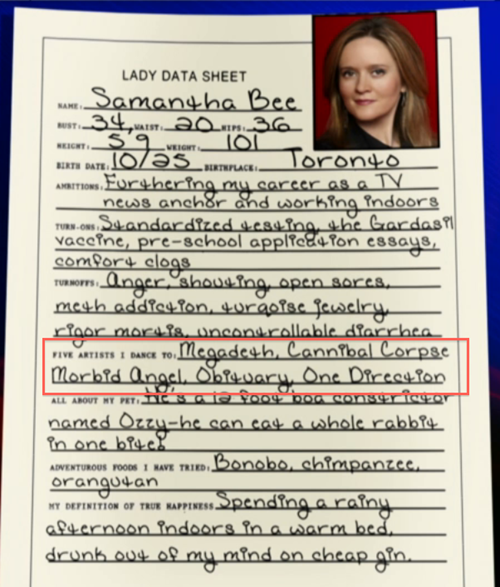 LADY DATA SHEET
NAME: Samantha Bee
BUST: 34 WAIST: 20 HIPS: 36
HEIGHT: 5 9 WEIGHT: 101
BIRTH DATE: 10/25 BIRTHPLACE: Toronto
AMBITIONS: Furthering my career as a TV
news anchor and working indoors
TURN-ONS: Standardized testing, the Gardasil
vaccine, pre-school application essays,
comfort clogs
TURNOFFS: Anger, shouting open sores,
meth addiction, turqoise jewelry
rigor mortis, uncontrollable diarrhea
FIVE ARTISTS I DANCE TO: Megadeth, Cannibal Corpse
Morbid Angel, Obituary, One Direction
ALL ABOUT MY PET: He's a 12 foot boa constrictor
named Ozzy-he can eat a whole rabbit
in one bite!
ADVENTUROUS FOODS I HAVE TRIED: Bonobo, chimpanzee,
orangutan
MY DEFINITION OF TRUE HAPPINESS Spending a rainy
afternoon indoors in a warm bed,
drunk out of my mind on cheap gin.